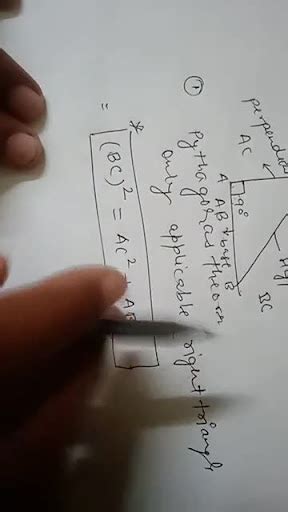 perpendicu
AC
A AB → base B
90°
BC
① Pythagoras theorem
only applicable right triangle
* (BC)² = AC² + AB
=